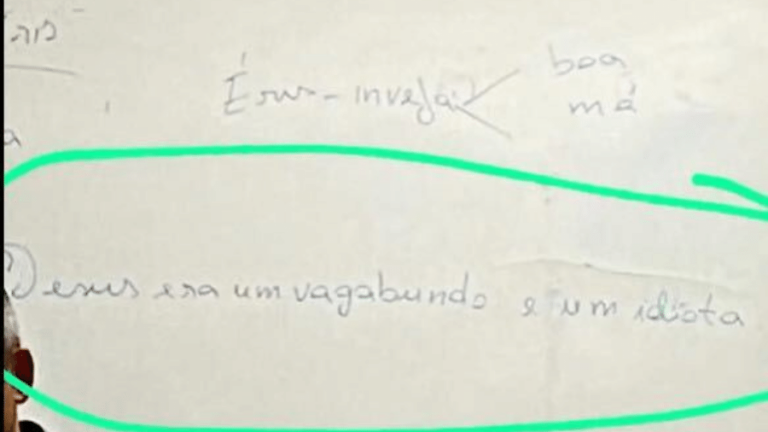 Érus - inveja boa
má
a
Jesus era um vagabundo e um idiota